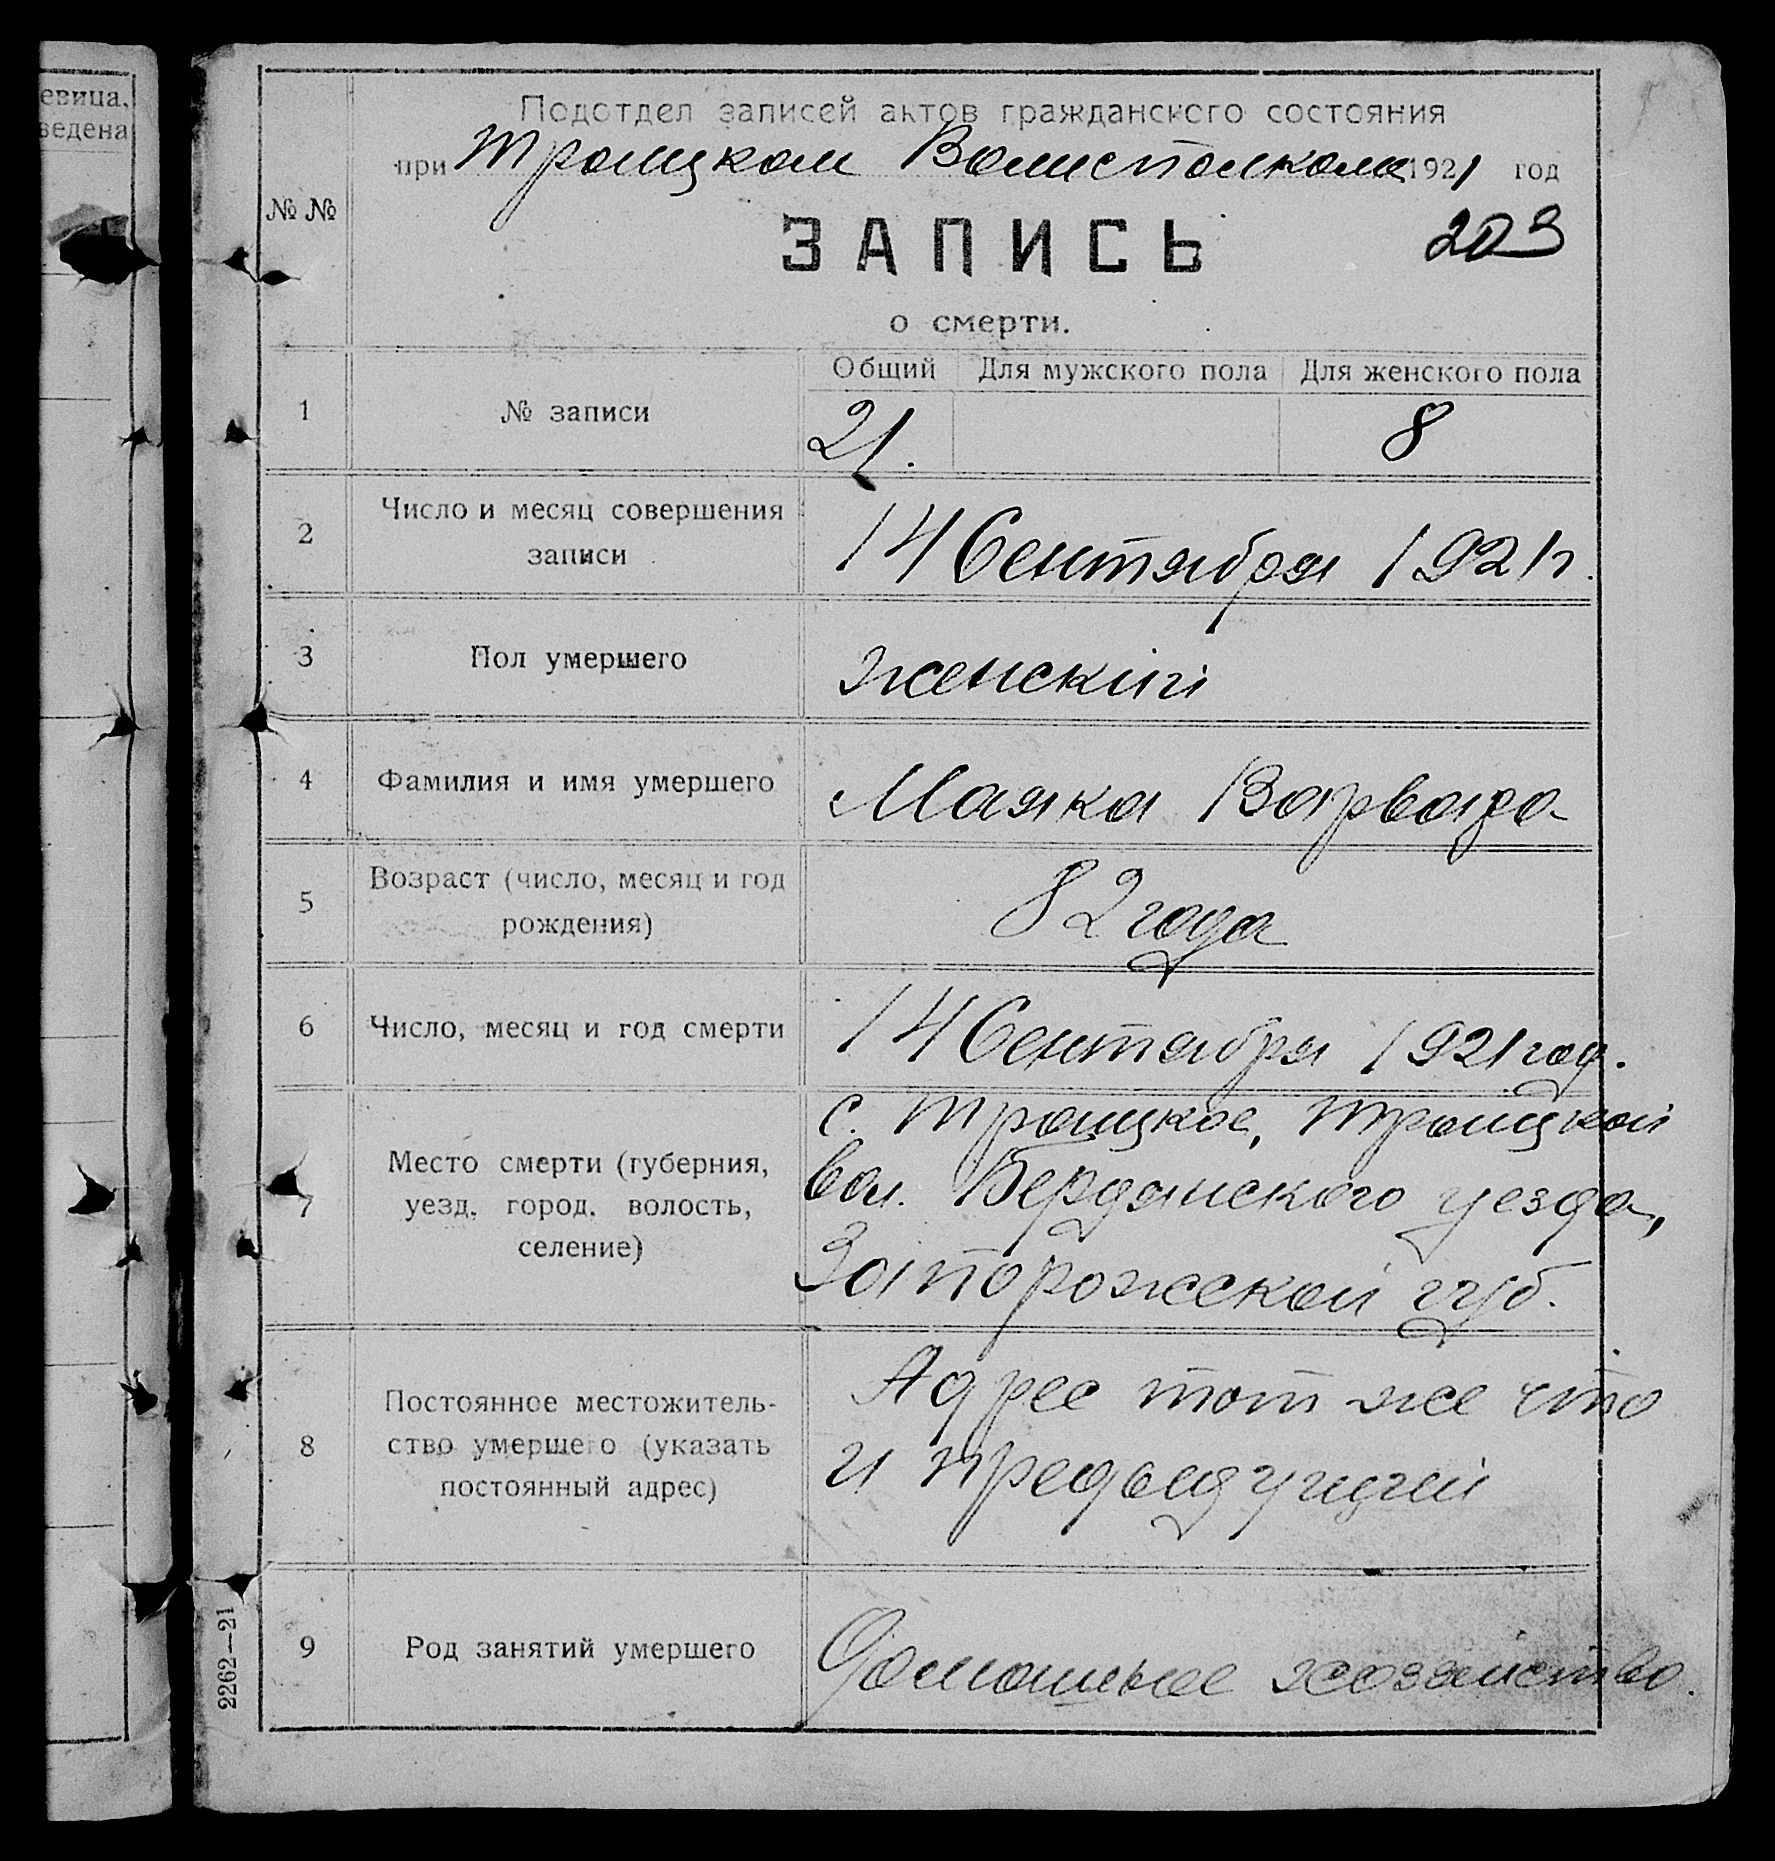 евица,
ведена
Подотдел записей актов гражданского состояния
при Троицком Волисполкоме 1921 год
№ №
203
ЗАПИСЬ
о смерти.
Общий Для мужского пола Для женского пола
1 № записи 21. 8
2 Число и месяц совершения
записи 14 Сентября 1921 г.
3 Пол умершего женскій
4 Фамилия и имя умершего Маяка Варвара
5 Возраст (число, месяц и год
рождения) 82 года
6 Число, месяц и год смерти 14 Сентября 1921 год.
с. Троицкое, Троицкой
Место смерти (губерния,
вол. Бердянского уезда,
7 уезд, город, волость,
селение) Запорожской губ.
Адрес тот же что
Постоянное местожитель-
8 ство умершего (указать и предыдущий
постоянный адрес)
9 Род занятий умершего Домашнее хозяйство.
2262—21